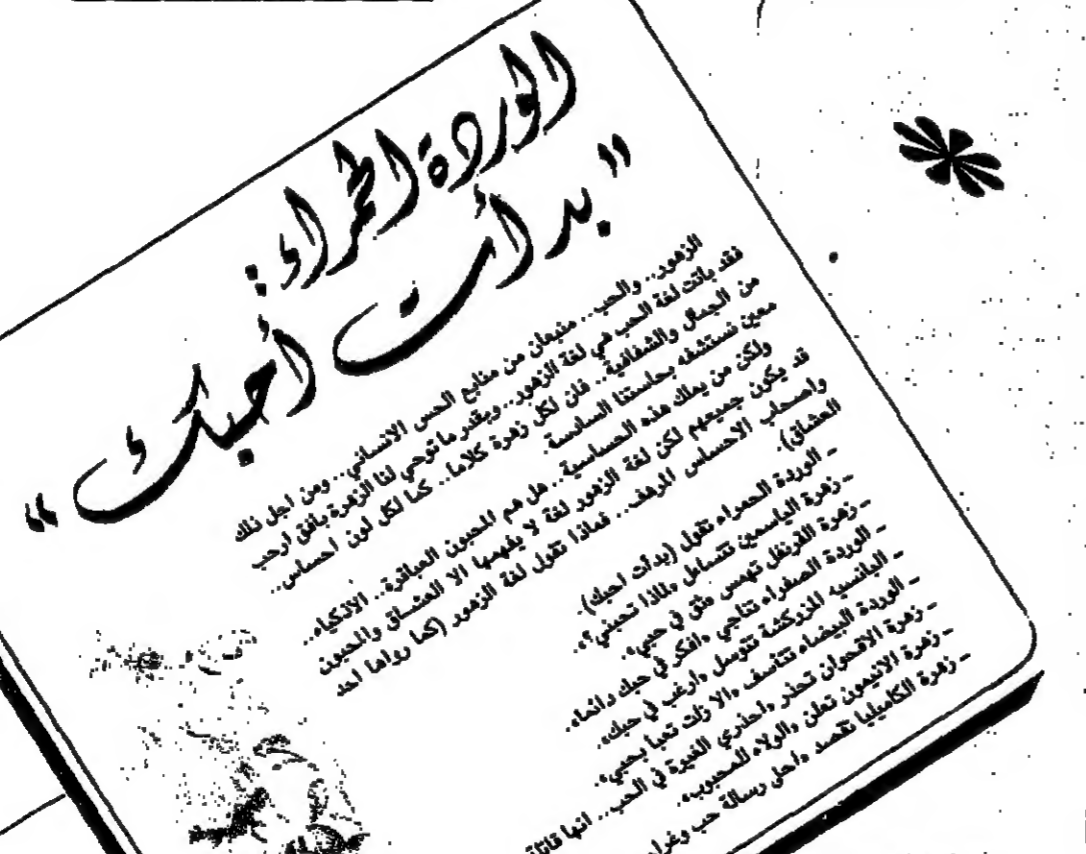 الوردة الحمراء:
"بدأت أحبك"
الزهور.. والحب.. منبعان من منابع الحس الانساني.. ومن اجل ذلك
فقد باتت لغة الحب هي لغة الزهور.. وبقدر ما توحي لنا الزهرة بافق ارحب
من الجمال والشفافية.. فان لكل زهرة كلاما.. كما لكل لون احساس..
معين نستشفه بحاستنا السادسة.
ولكن من يملك هذه الحساسية.. هل هم المحبون العباقرة.. الاذكياء..
قد يكون جميعهم لكن لغة الزهور لغة لا يفهمها الا العشاق والمحبون
واصحاب الاحساس المرهف.. فماذا تقول لغة الزهور (كما رواها احد
العشاق).
ـ الوردة الحمراء تقول (بدأت احبك).
ـ زهرة الياسمين تتساءل «لماذا تحبني؟».
ـ زهرة القرنفل تهمس «ثق في حبي».
ـ الوردة الصفراء تناجي «افكر في حبك دائما».
ـ البانسيه المزركشة تتوسل «ارغب في حبك».
ـ الوردة البيضاء تتأسف «الا زلت تعبا بحبي».
ـ زهرة الاقحوان تحذر «احذري الغيرة في الحب.. انها قاتلة
ـ زهرة الانيمون تعلن «الولاء للمحبوب».
ـ زهرة الكاميليا تقصد «احلى رسالة حب وغرام